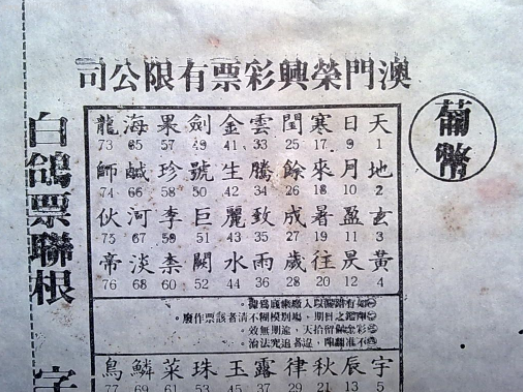 澳門榮興彩票有限公司
葡幣
白鴿票聯根
天日寒閏雲金劍果海龍
1 9 17 25 33 41 49 57 65 73
地月來餘騰生號珍鹹師
2 10 18 26 34 42 50 58 66 74
玄盈暑成致麗巨李河伙
3 11 19 27 35 43 51 59 67 75
黃昃往歲雨水闕柰淡帝
4 12 20 28 36 44 52 60 68 76
宇辰秋律露玉珠菜鱗鳥
5 13 21 29 37 45 53 61 69 77
字